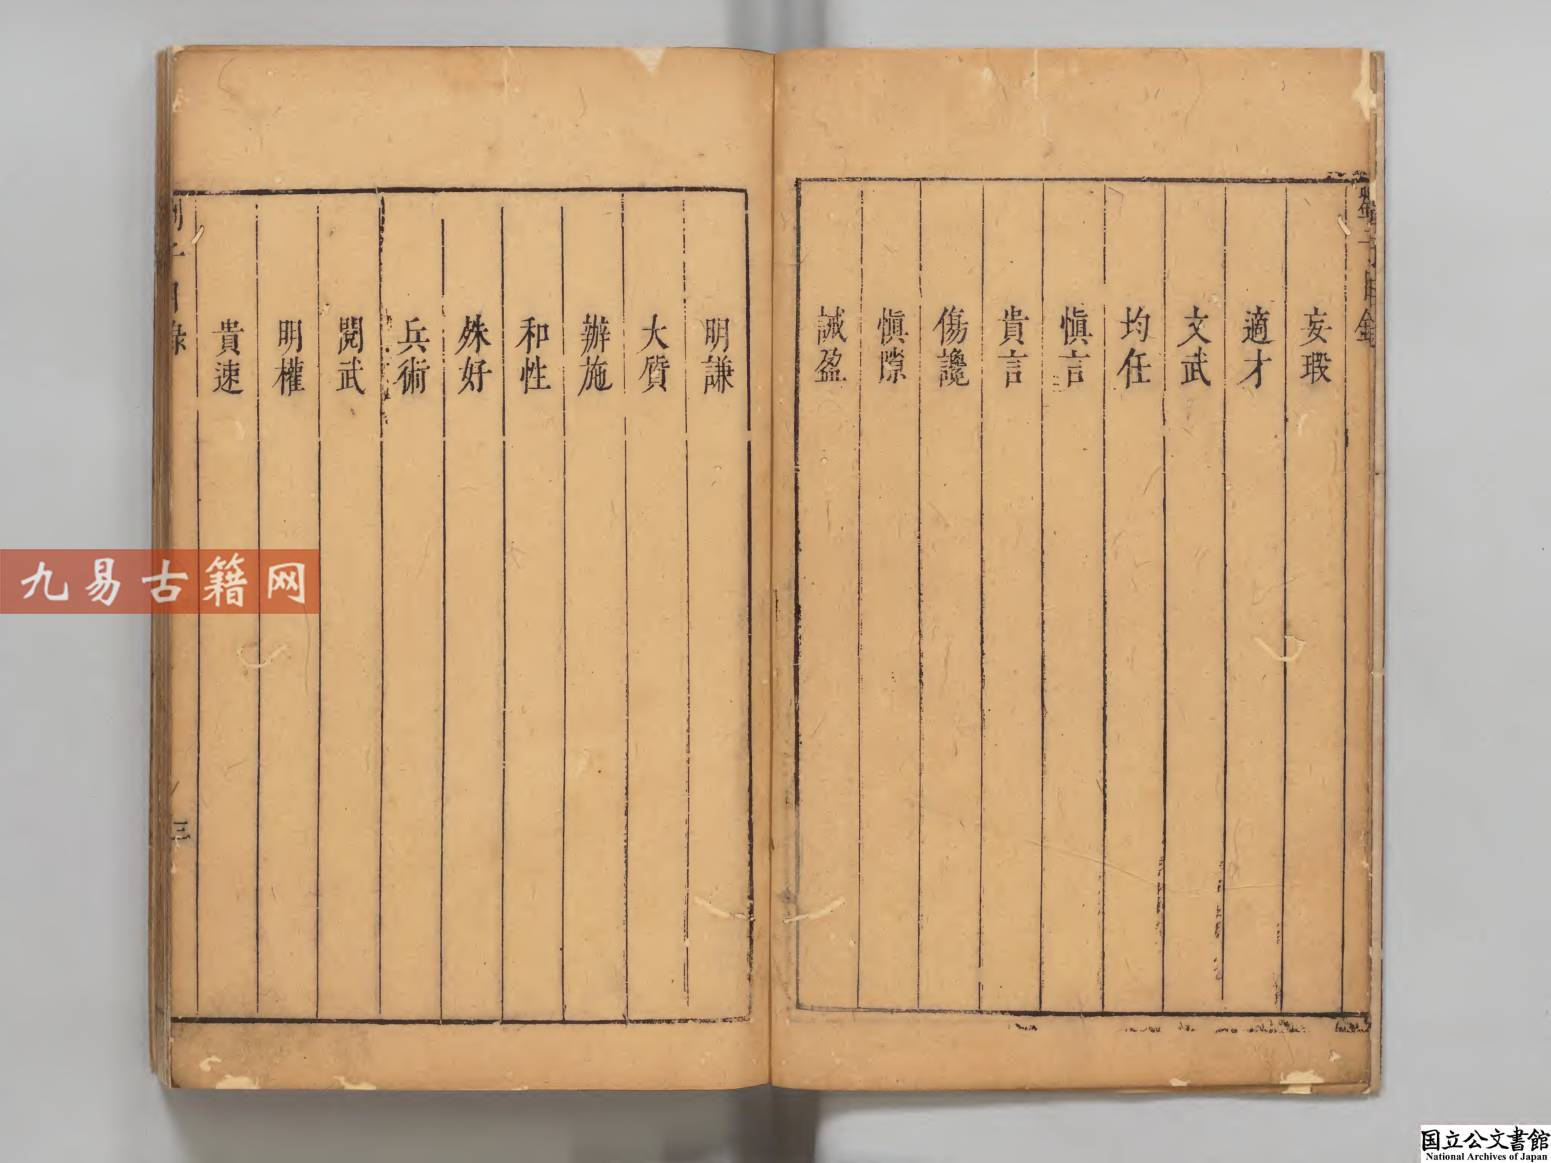 妄瑕
適才
文武
均任
愼言
貴言
傷讒
愼隙
誡盈
明謙
大質
辦施
和性
殊好
兵術
閱武
明權
貴速
三
九易古籍网
国立公文書館
National Archives of Japan